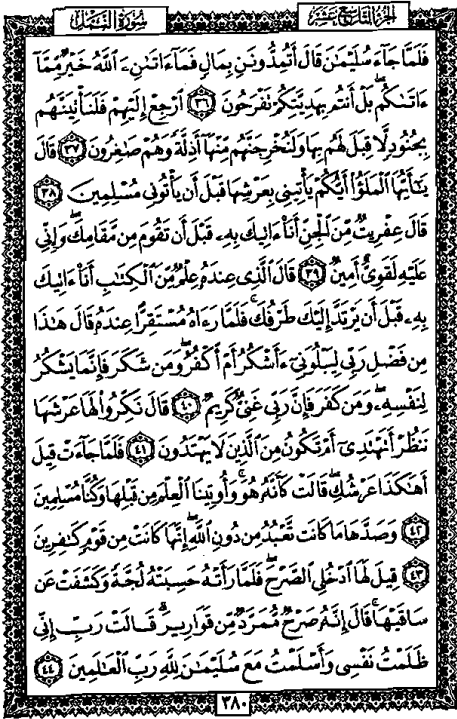 الجزء التاسع عشر
سورة النمل
فَلَمَّا جَآءَ سُلَيْمَـٰنَ قَالَ أَتُمِدُّونَنِ بِمَالٍ فَمَآ ءَاتَـٰنِۦَ ٱللَّهُ خَيْرٌ مِّمَّآ
ءَاتَـٰكُم ۖ بَلْ أَنتُم بِهَدِيَّتِكُمْ تَفْرَحُونَ ٣٦ ٱرْجِعْ إِلَيْهِمْ فَلَنَأْتِيَنَّهُم
بِجُنُودٍ لَّا قِبَلَ لَهُم بِهَا وَلَنُخْرِجَنَّهُم مِّنْهَآ أَذِلَّةً وَهُمْ صَـٰغِرُونَ ٣٧ قَالَ
يَـٰٓأَيُّهَا ٱلْمَلَؤُا۟ أَيُّكُمْ يَأْتِينِى بِعَرْشِهَا قَبْلَ أَن يَأْتُونِى مُسْلِمِينَ ٣٨
قَالَ عِفْرِيتٌ مِّنَ ٱلْجِنِّ أَنَا۠ ءَاتِيكَ بِهِۦ قَبْلَ أَن تَقُومَ مِن مَّقَامِكَ ۖ وَإِنِّى
عَلَيْهِ لَقَوِىٌّ أَمِينٌ ٣٩ قَالَ ٱلَّذِى عِندَهُۥ عِلْمٌ مِّنَ ٱلْكِتَـٰبِ أَنَا۠ ءَاتِيكَ
بِهِۦ قَبْلَ أَن يَرْتَدَّ إِلَيْكَ طَرْفُكَ ۚ فَلَمَّا رَءَاهُ مُسْتَقِرًّا عِندَهُۥ قَالَ هَـٰذَا
مِن فَضْلِ رَبِّى لِيَبْلُوَنِىٓ ءَأَشْكُرُ أَمْ أَكْفُرُ ۖ وَمَن شَكَرَ فَإِنَّمَا يَشْكُرُ
لِنَفْسِهِۦ ۖ وَمَن كَفَرَ فَإِنَّ رَبِّى غَنِىٌّ كَرِيمٌ ٤٠ قَالَ نَكِّرُوا۟ لَهَا عَرْشَهَا
نَنظُرْ أَتَهْتَدِىٓ أَمْ تَكُونُ مِنَ ٱلَّذِينَ لَا يَهْتَدُونَ ٤١ فَلَمَّا جَآءَتْ قِيلَ
أَهَـٰكَذَا عَرْشُكِ ۖ قَالَتْ كَأَنَّهُۥ هُوَ ۚ وَأُوتِينَا ٱلْعِلْمَ مِن قَبْلِهَا وَكُنَّا مُسْلِمِينَ
٤٢ وَصَدَّهَا مَا كَانَت تَّعْبُدُ مِن دُونِ ٱللَّهِ ۖ إِنَّهَا كَانَتْ مِن قَوْمٍ كَـٰفِرِينَ
٤٣ قِيلَ لَهَا ٱدْخُلِى ٱلصَّرْحَ ۖ فَلَمَّا رَأَتْهُ حَسِبَتْهُ لُجَّةً وَكَشَفَتْ عَن
سَاقَيْهَا ۚ قَالَ إِنَّهُۥ صَرْحٌ مُّمَرَّدٌ مِّن قَوَارِيرَ ۗ قَالَتْ رَبِّ إِنِّى
ظَلَمْتُ نَفْسِى وَأَسْلَمْتُ مَعَ سُلَيْمَـٰنَ لِلَّهِ رَبِّ ٱلْعَـٰلَمِينَ ٤٤
٣٨٠